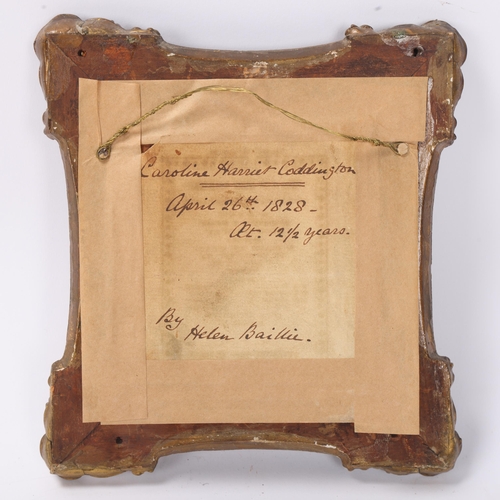 Caroline Harriet Coddington
April 26th. 1828 -
Æt. 12 1/2 years.
By
Helen Baillie.